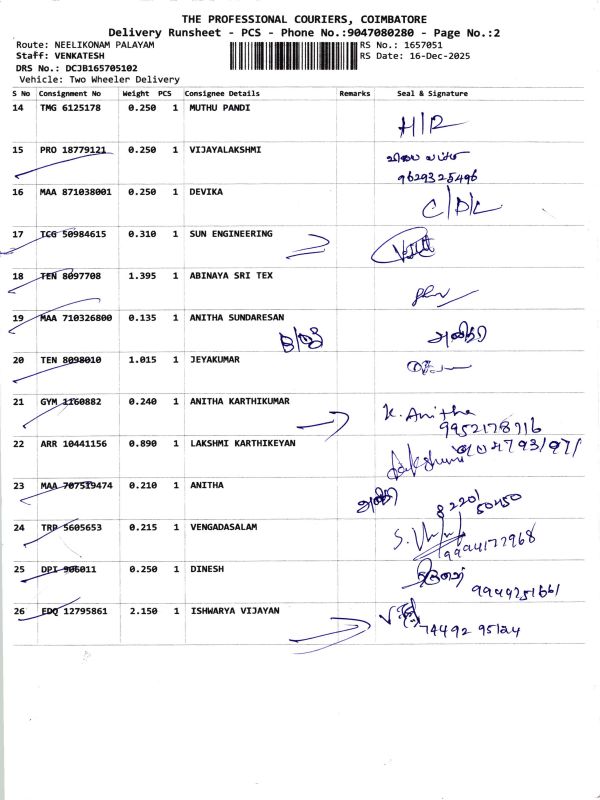 THE PROFESSIONAL COURIERS, COIMBATORE
Delivery Runsheet - PCS - Phone No.:9047080280 - Page No.:2
Route: NEELIKONAM PALAYAM
RS No.: 1657051
Staff: VENKATESH
RS Date: 16-Dec-2025
DRS No.: DCJB165705102
Vehicle: Two Wheeler Delivery
S No Consignment No Weight PCS Consignee Details Remarks Seal & Signature
14 TMG 6125178 0.250 1 MUTHU PANDI H/R
15 PRO 18779121 0.250 1 VIJAYALAKSHMI
9629325496
16 MAA 871038001 0.250 1 DEVIKA C/D/L
17 TCG 50984615 0.310 1 SUN ENGINEERING
18 TEN 8097708 1.395 1 ABINAYA SRI TEX
19 MAA 710326800 0.135 1 ANITHA SUNDARESAN
20 TEN 8098010 1.015 1 JEYAKUMAR
21 GYM 1160882 0.240 1 ANITHA KARTHIKUMAR K. Anitha
9952178916
22 ARR 10441156 0.890 1 LAKSHMI KARTHIKEYAN Lakshmi
23 MAA 707519474 0.210 1 ANITHA 82201
50450
24 TRP 5605653 0.215 1 VENGADASALAM
9994177968
25 DPI 906011 0.250 1 DINESH
9944751661
26 EDQ 12795861 2.150 1 ISHWARYA VIJAYAN
74492 95124